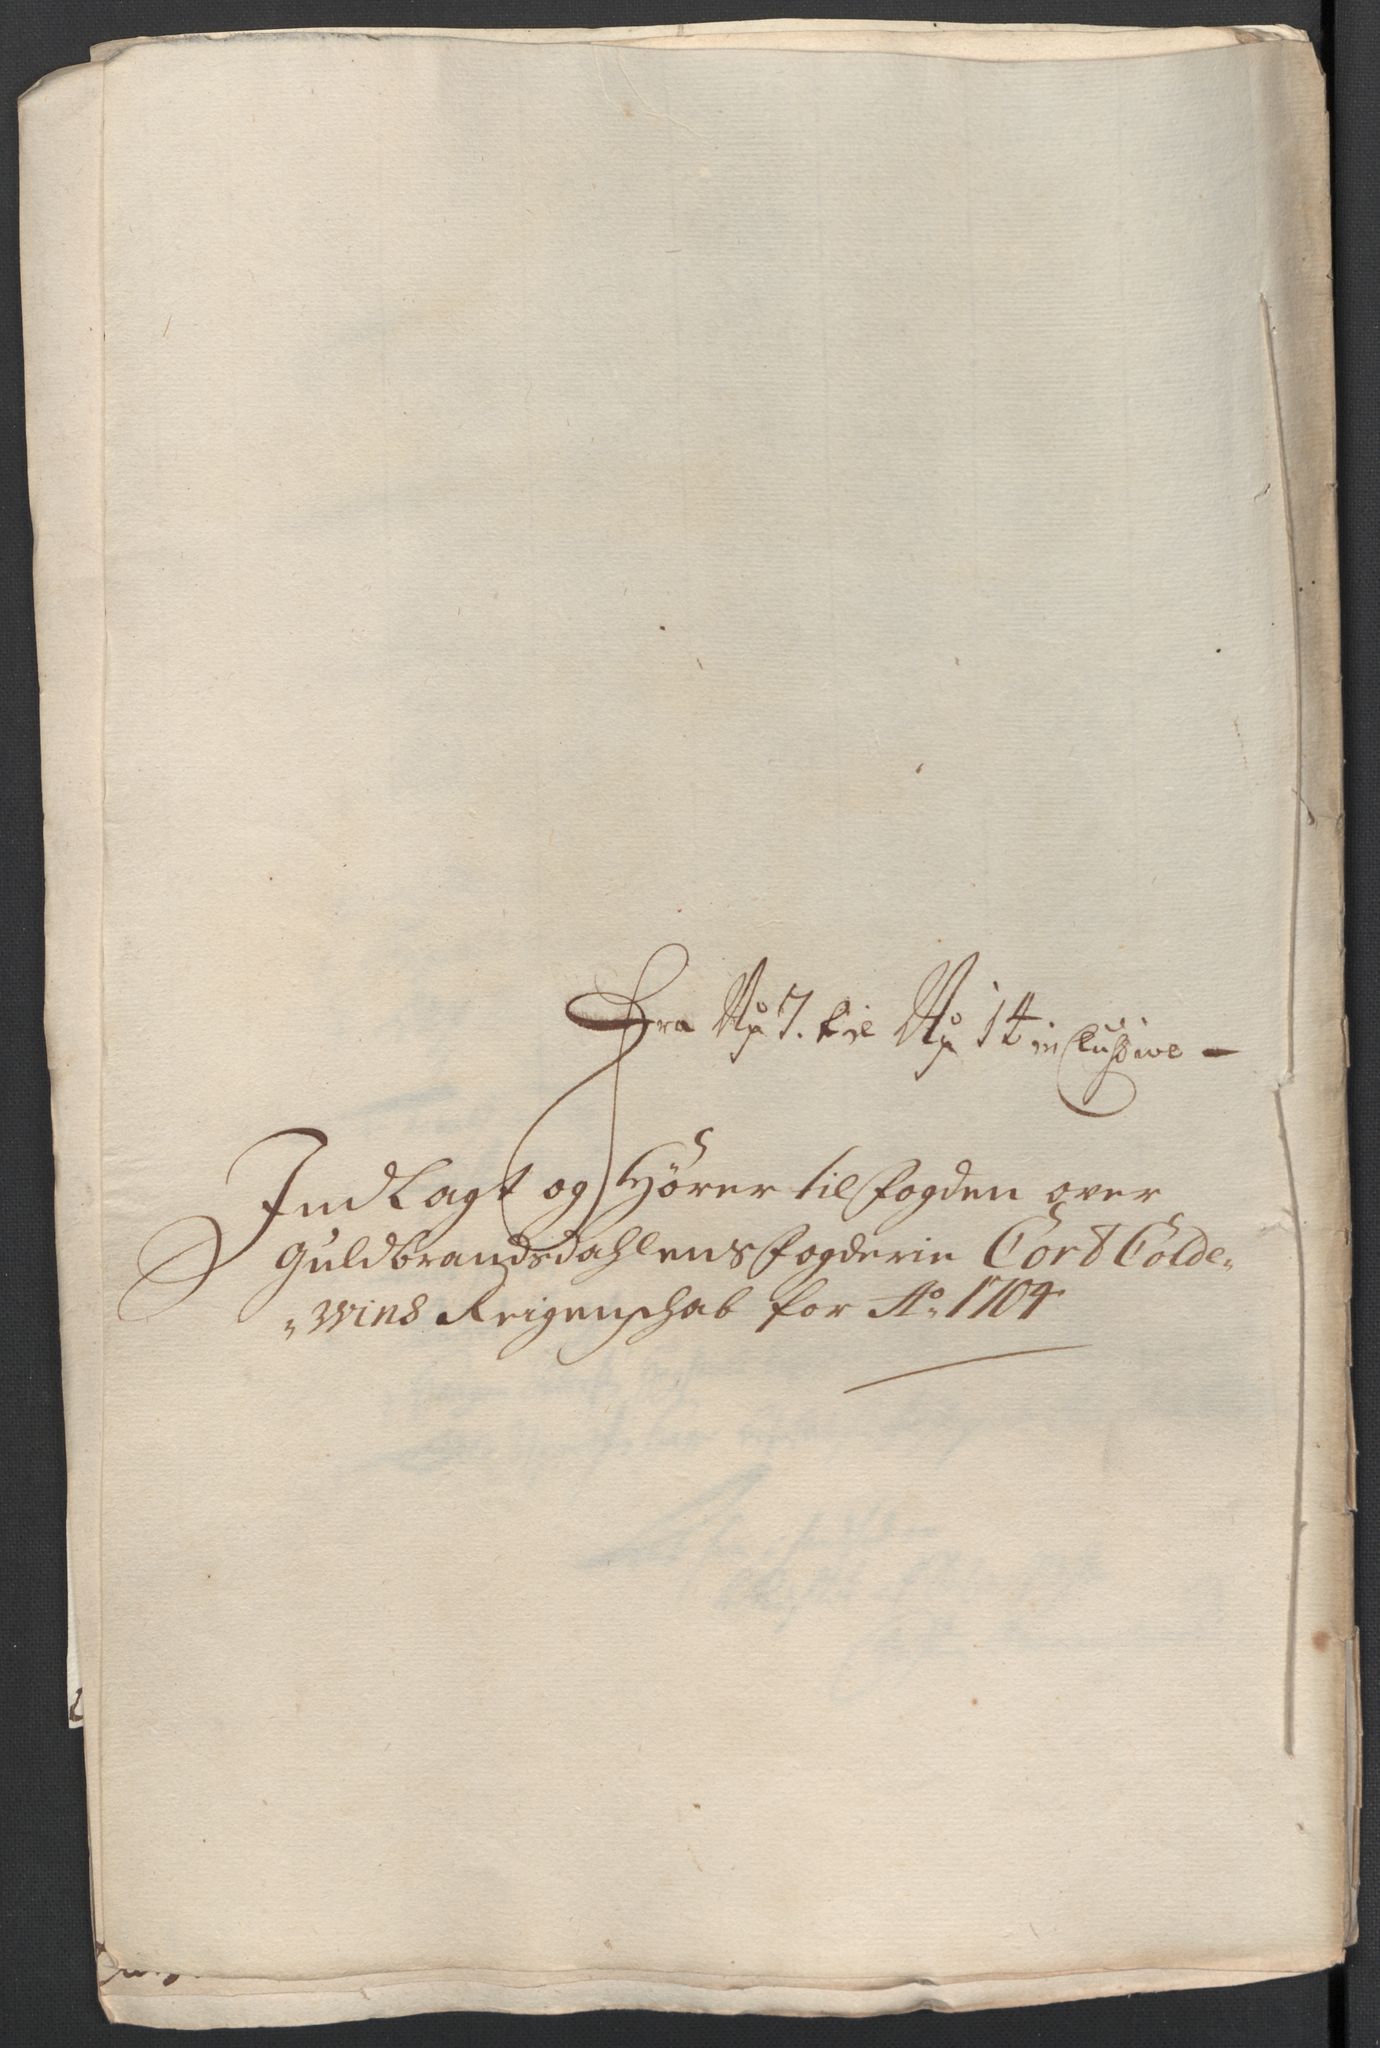 Fra No 7. til No 14 inclusive –
Indlagt og Hører til fogden over
Guldbrandsdahlens fogderie Cort Colde„
„wins Reigenschab for Ao 1704